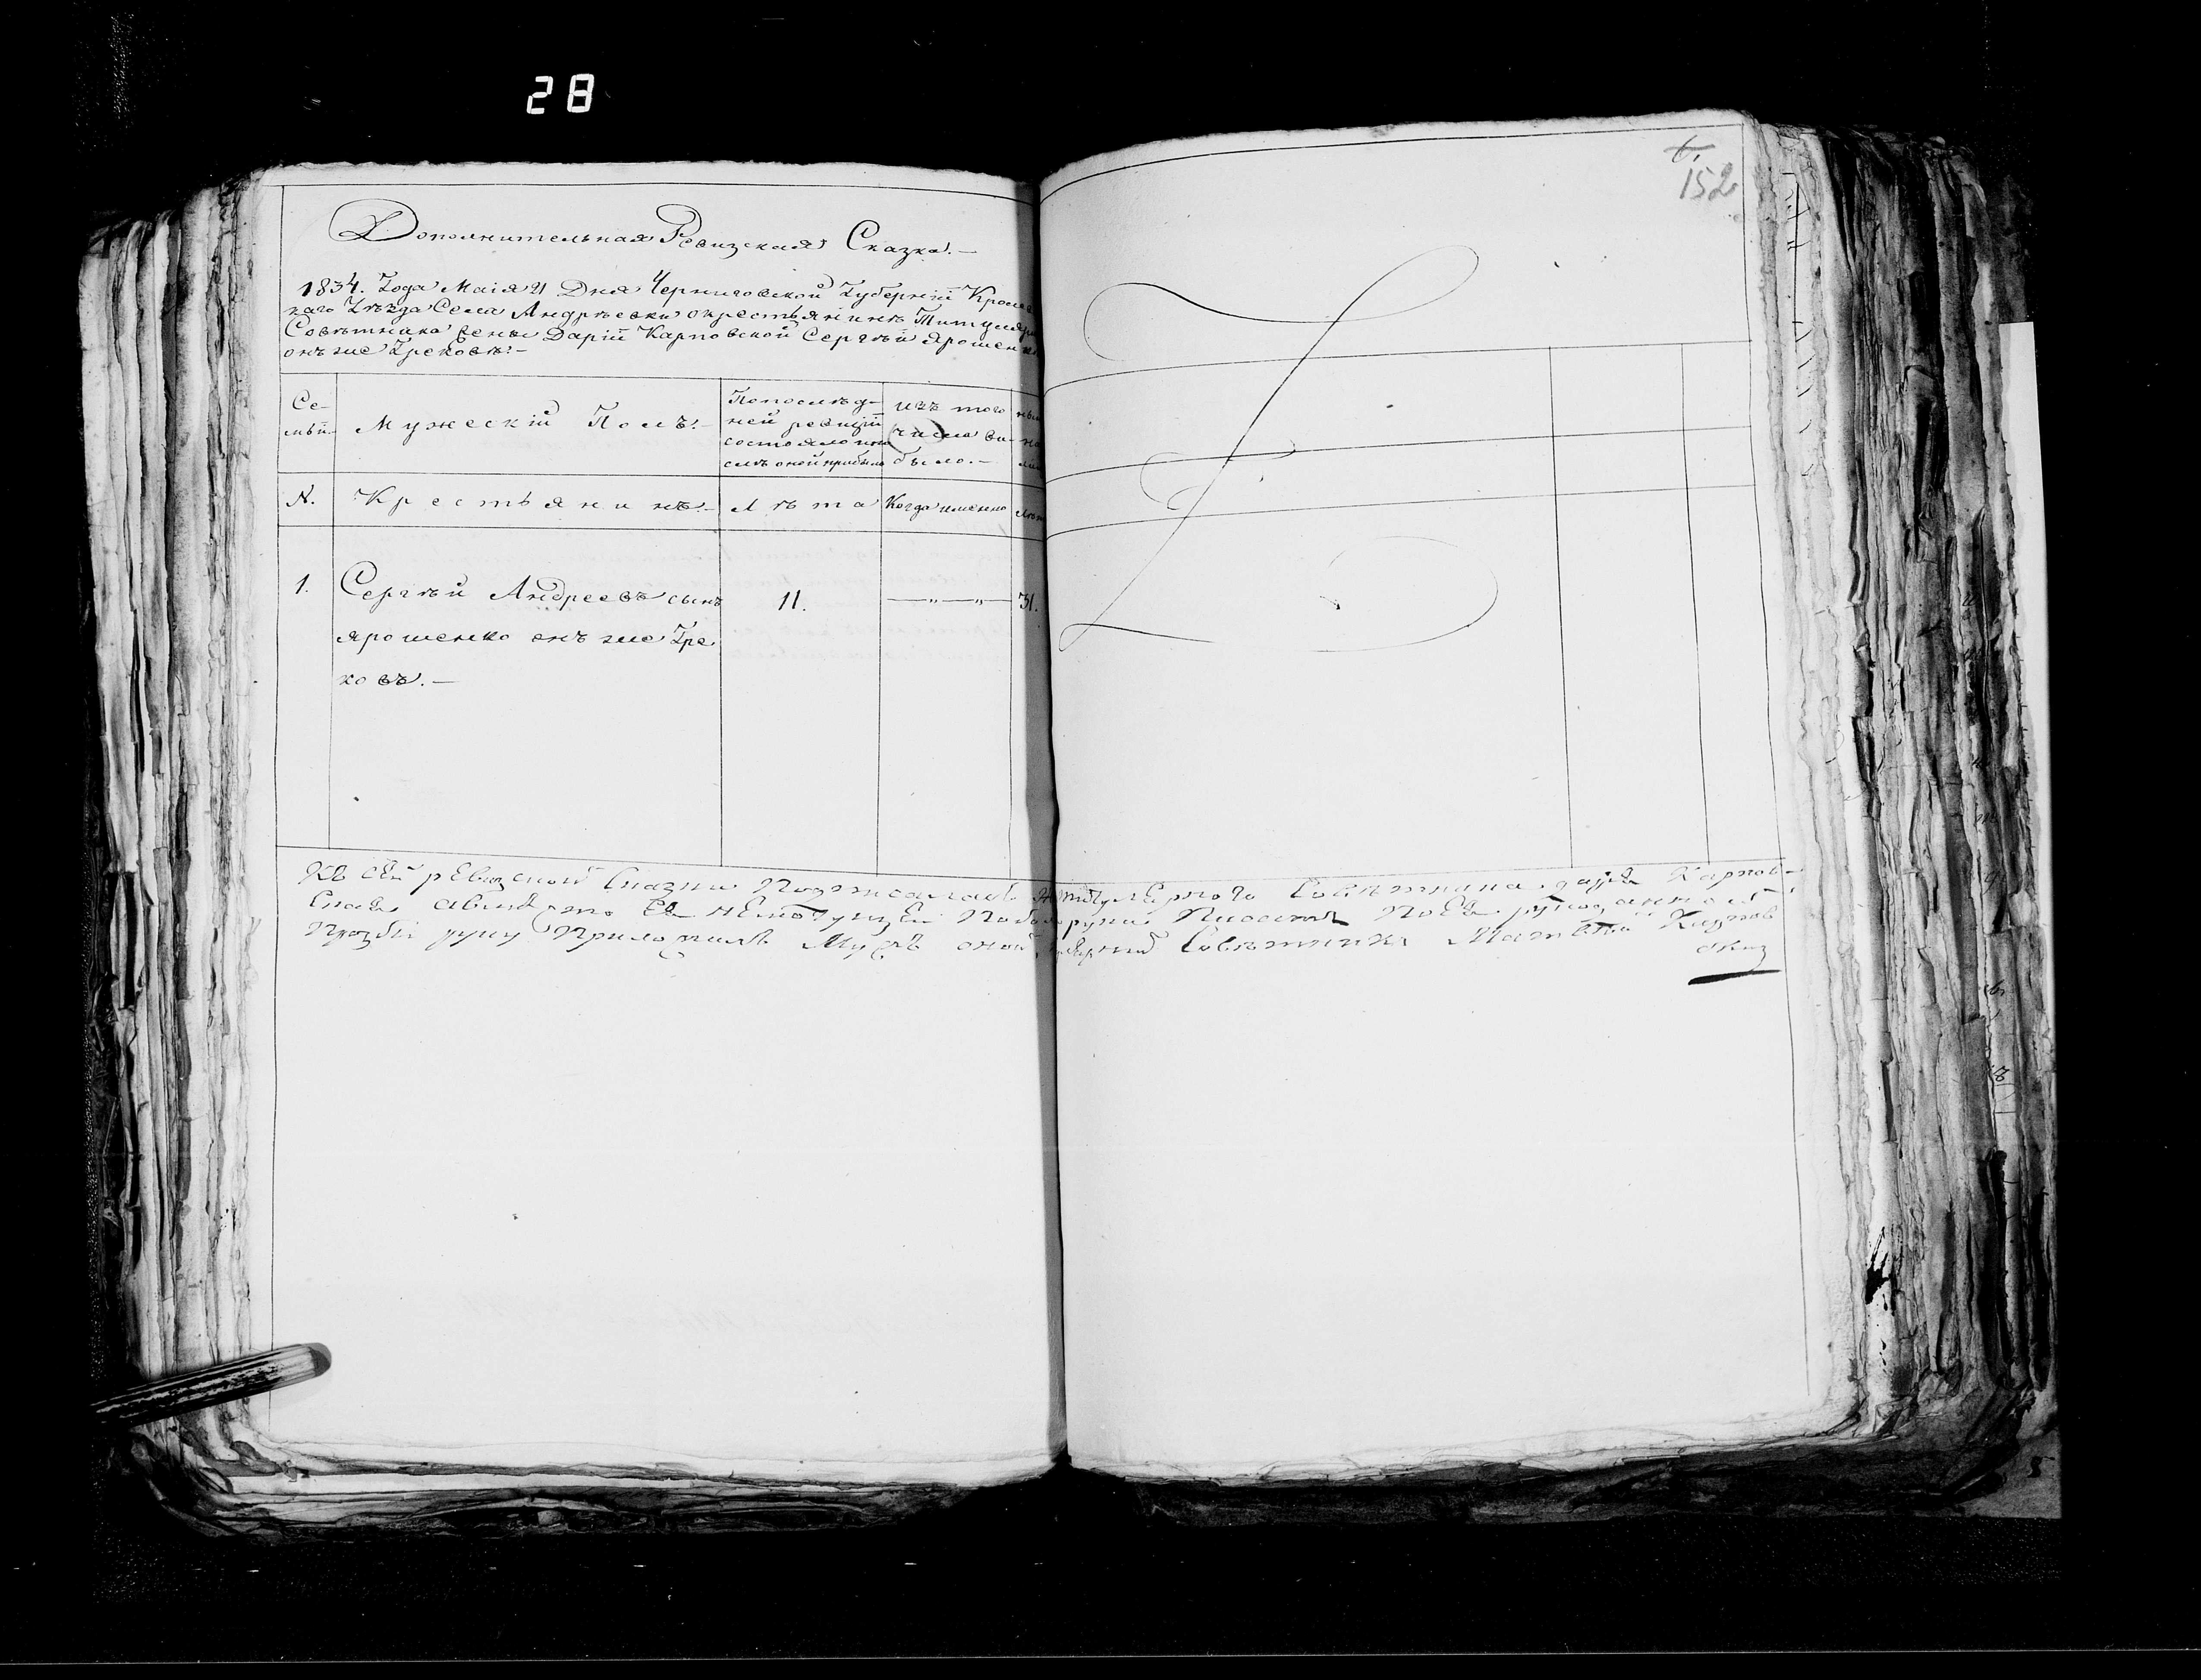 28
152
Дополнительная Ревизская Сказка.—
1834. Года Маія 21 Дня Черниговской Губерніи Кролев
каго Уезда Села Андреевки о крестьянинѣ Титуляр
Совѣтника жены Даріи Карповской Сергѣй Ярошенк
онъ же Грековъ.—
Се-
мьи-
Мужескій Полъ.—
По послѣд-
ней ревизіи
состояло и по
слѣ оной прибыло
изъ того
числа вы-
было.—
№.
Крестьянинъ.—
Лѣта
Когда именно
1.
Сергѣй Андреевъ сынъ
Ярошенко онъ же Гре
ковъ.—
11.
—„—„—
31.
Къ сей ревизской Сказки Титулярного Совѣтника Карпов-
Ская а вместо Ея
прозбы руку приложилъ Мужъ оной Совѣтникъ Матвей Карпов
ский